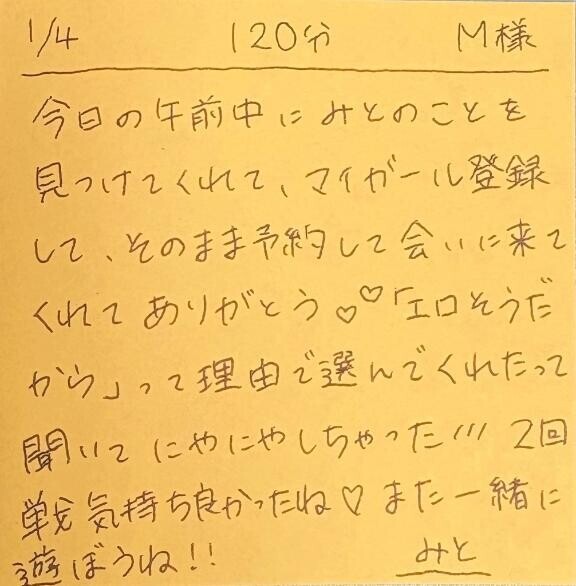 1/4 120分 M様
今日の午前中にみとのことを
見つけてくれて、マイガール登録
して、そのまま予約して会いに来て
くれてありがとう♡♡「エロそうだ
から」って理由で選んでくれたって
聞いてにやにやしちゃった/// 2回
戦気持ち良かったね♡また一緒に
遊ぼうね!!
みと